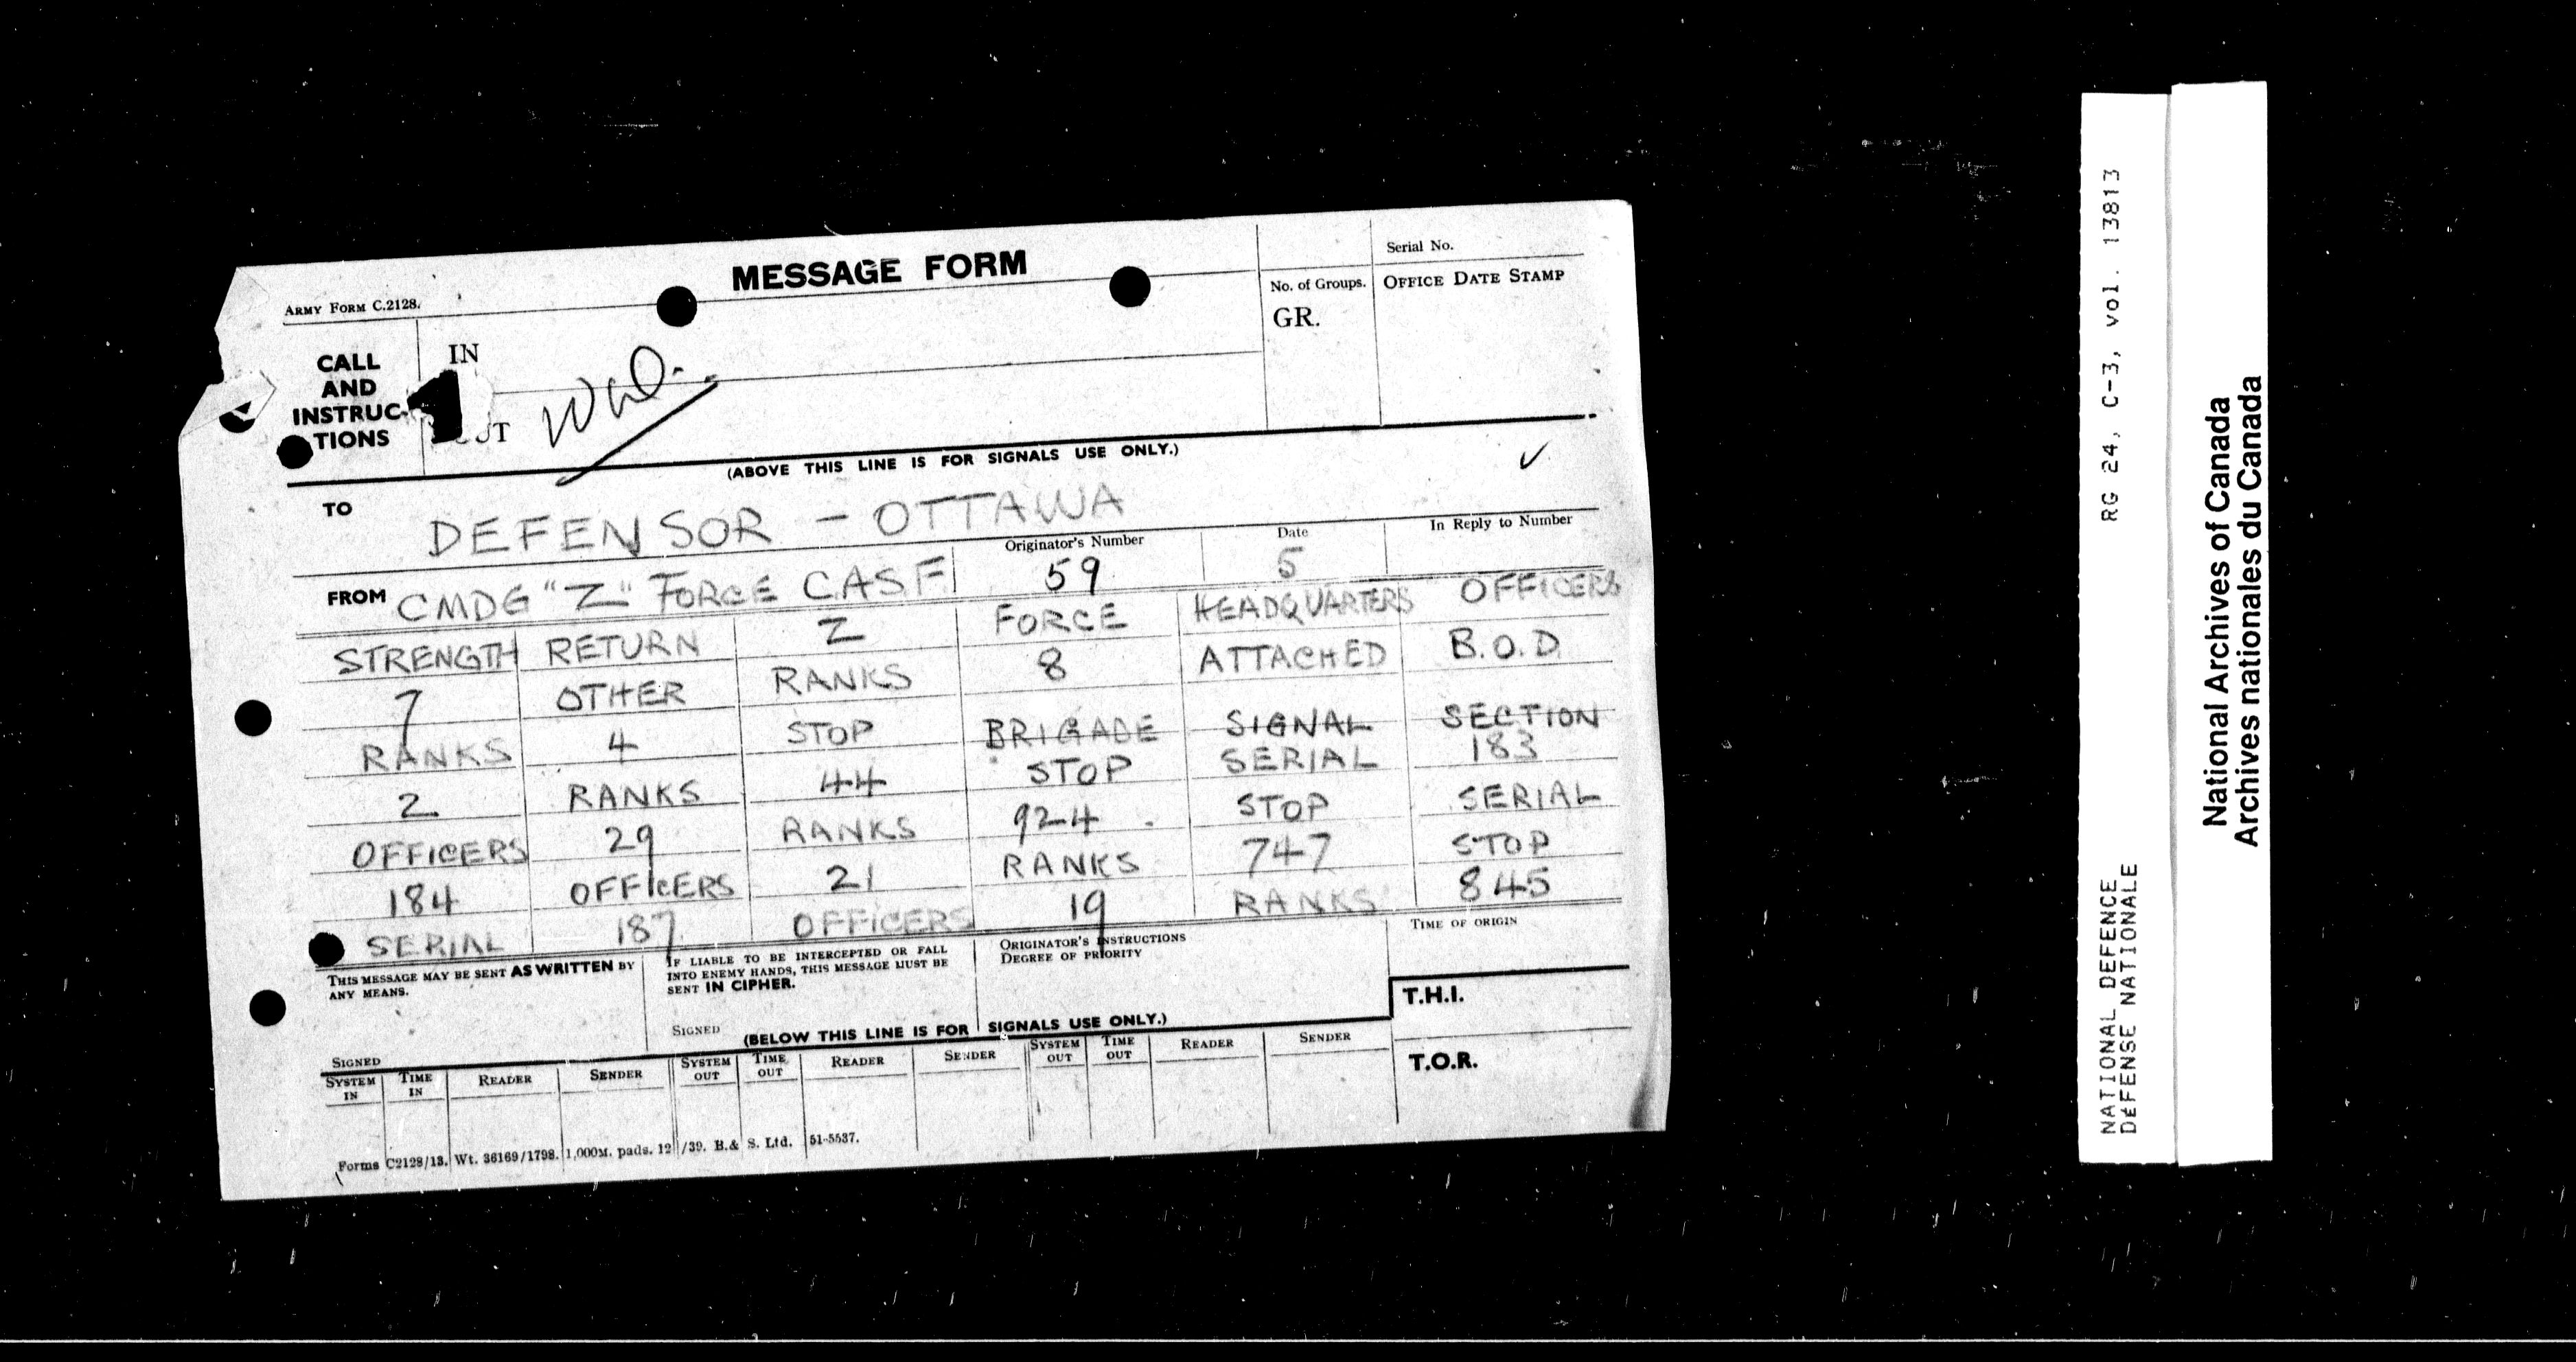 MESSAGE FORM
ARMY FORM C.2128.
Serial No.
No. of Groups.
OFFICE DATE STAMP
GR.
CALL
AND
INSTRUC-
TIONS
IN
(ABOVE THIS LINE IS FOR SIGNALS USE ONLY.)
✓
TO DEFENSOR - OTTAWA
FROM CMDG "Z" FORCE C.A.S.F.
Originator's Number 59
Date 5
In Reply to Number
STRENGTH RETURN Z FORCE HEADQUARTERS OFFICERS
7 OTHER RANKS 8 ATTACHED B.O.D.
RANKS 4 STOP BRIGADE SIGNAL SECTION
2 RANKS 44 STOP SERIAL 183
OFFICERS 29 RANKS 924 STOP SERIAL
184 OFFICERS 21 RANKS 747 STOP
SERIAL 187 OFFICERS 19 RANKS 845
THIS MESSAGE MAY BE SENT AS WRITTEN BY
ANY MEANS.
SIGNED
IF LIABLE TO BE INTERCEPTED OR FALL
INTO ENEMY HANDS, THIS MESSAGE MUST BE
SENT IN CIPHER.
SIGNED
ORIGINATOR'S INSTRUCTIONS
DEGREE OF PRIORITY
TIME OF ORIGIN
T.H.I.
(BELOW THIS LINE IS FOR SIGNALS USE ONLY.)
SYSTEM IN TIME IN READER SENDER SYSTEM OUT TIME OUT READER SENDER SYSTEM OUT TIME OUT READER SENDER
T.O.R.
Forms C2128/13. Wt. 36169/1798. 1,000M. pads. 12/39. B.& S. Ltd. 51-5537.
RG 24, C-3, vol. 13813
NATIONAL DEFENCE
DéFENSE NATIONALE
National Archives of Canada
Archives nationales du Canada